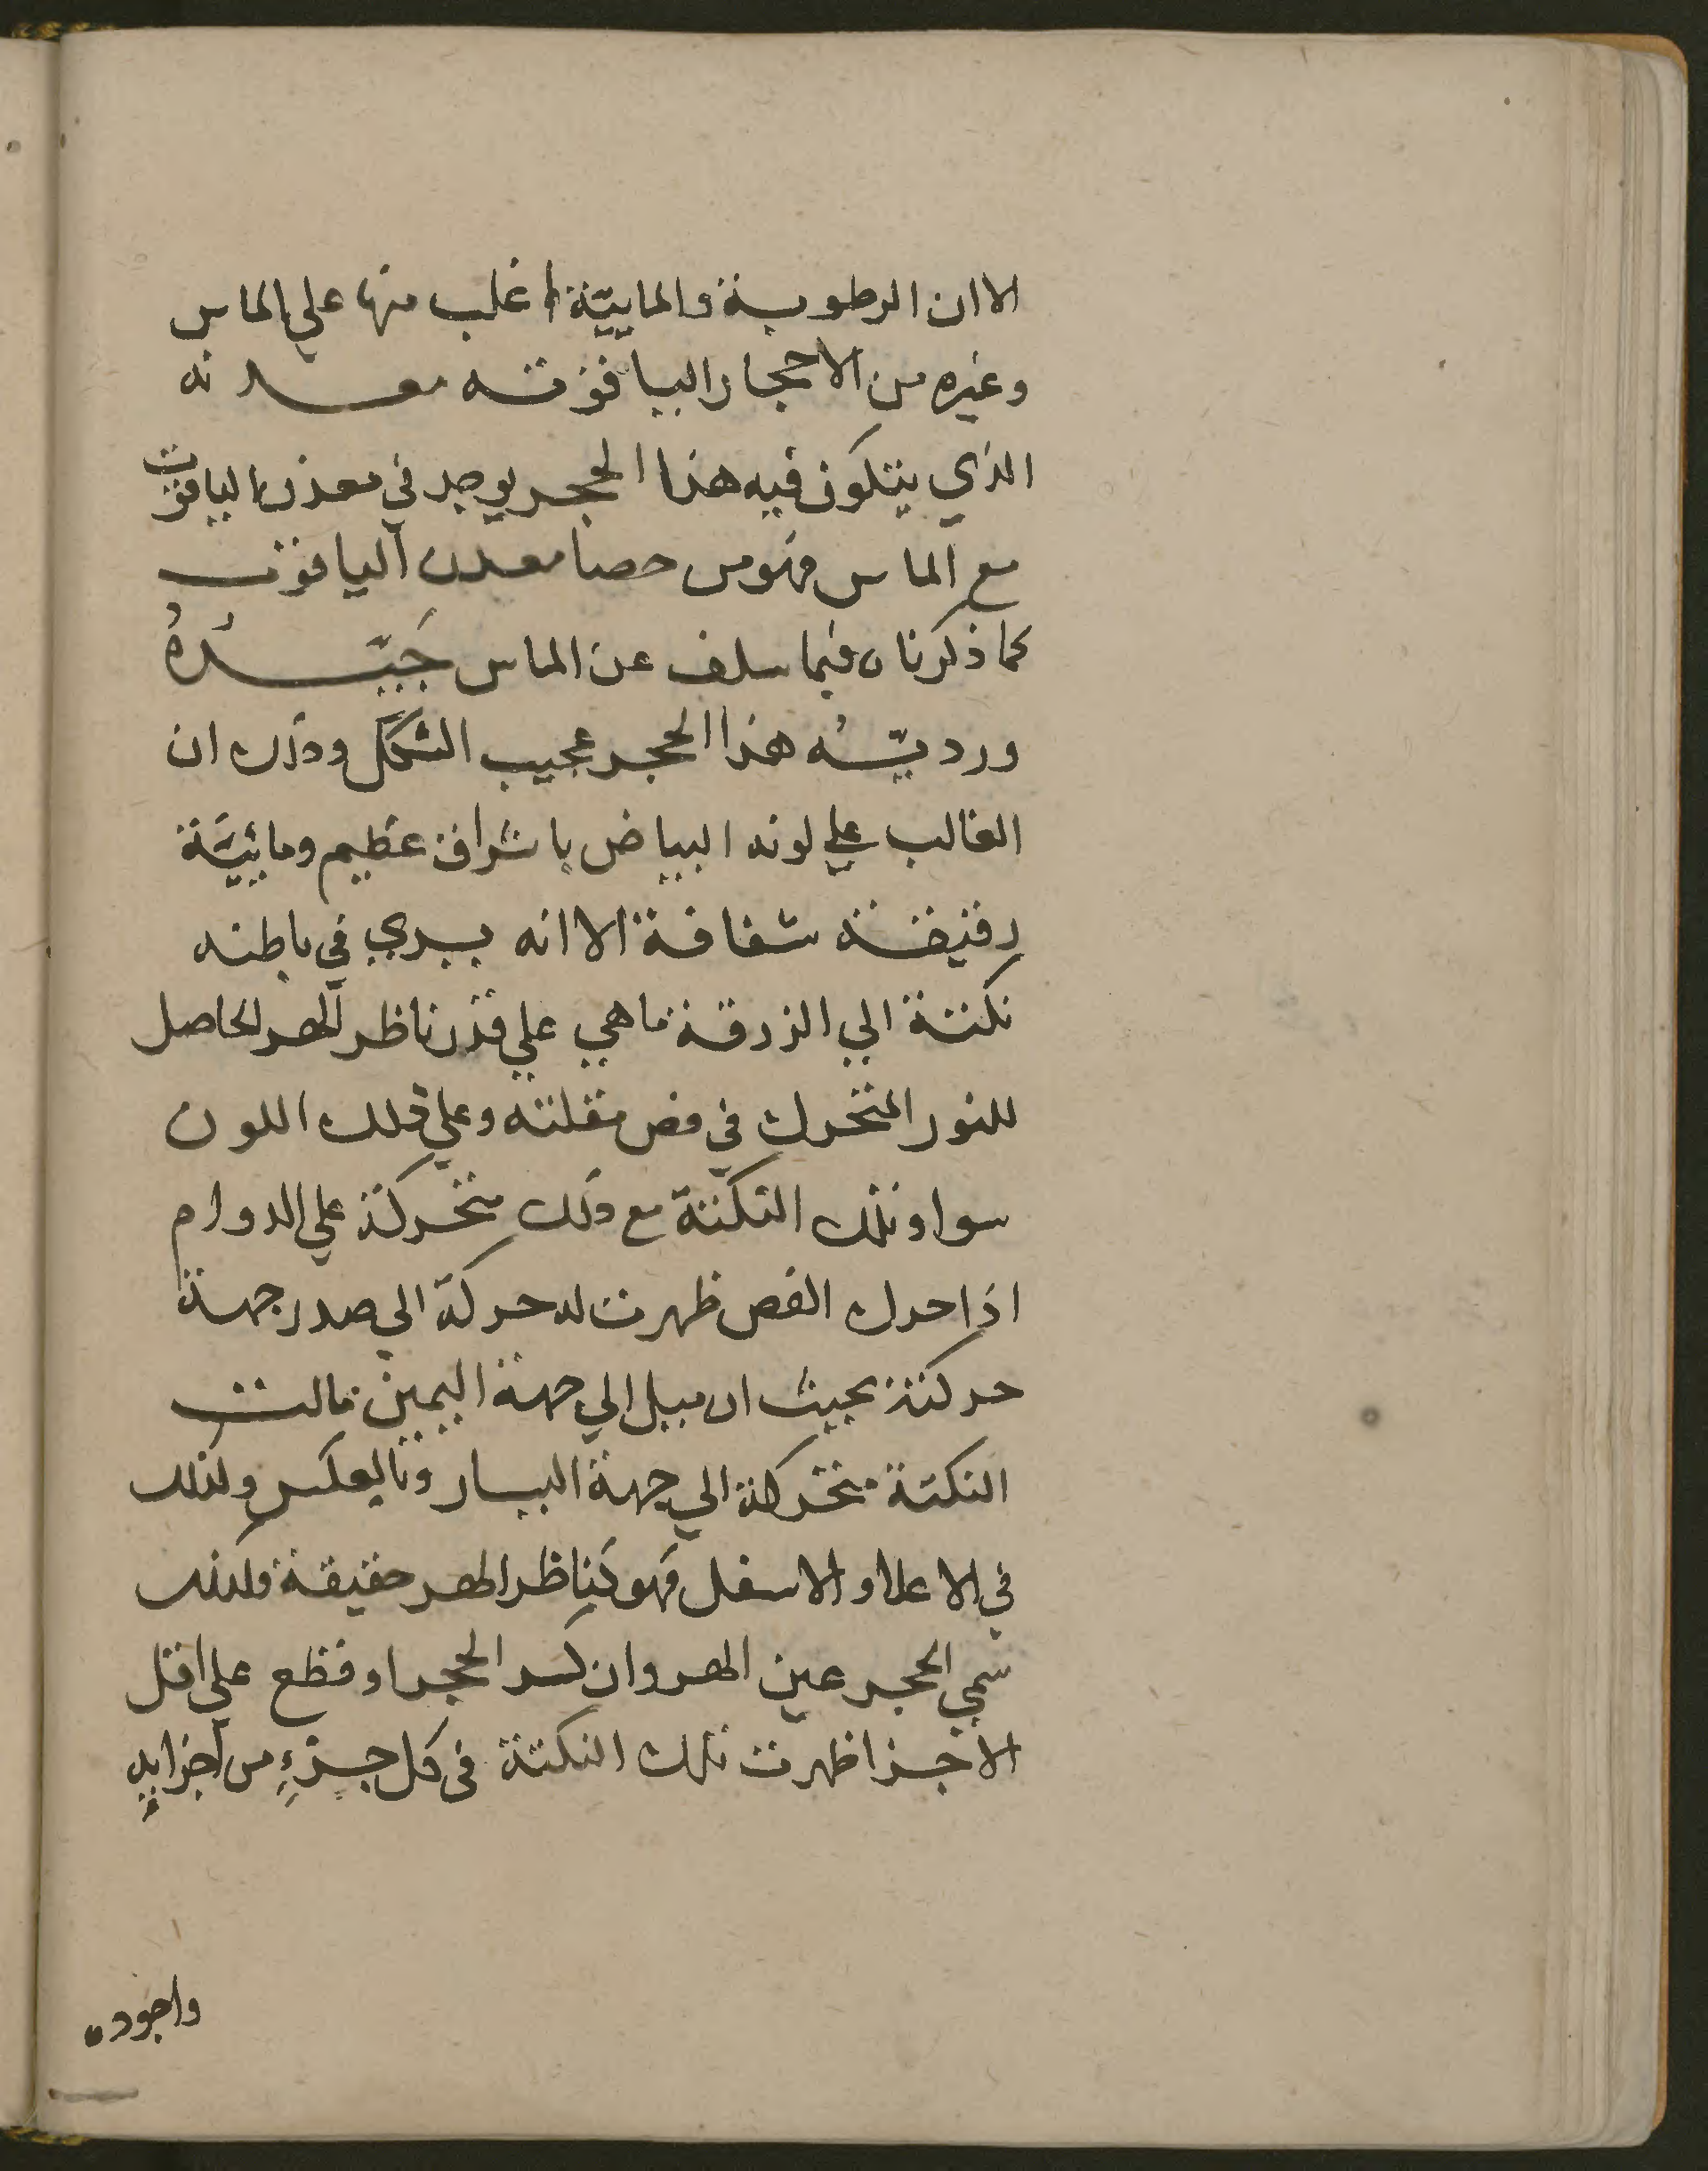 الا ان الرطوبة والماييّة اغلب منها علي الماس
وغيره من الاحجار الياقوتيه معدنه
الذي يتكون فيه هذا الحجر يوجد في معدن الياقوت
مع الماس فهو من حصا معدن الياقوت
كما ذكرناه فيما سلف عن الماس جَيّدُهُ
ورديّه هذا الحجر عجيب الشكل وذلك ان
الغالب علي لونه البياض باشراق عظيم ومائيَّة
رقيقة شفافة الا انه يري في باطنه
نكتة الي الزرقة ما هي علي قدر ناظر الهر الحاصل
للنور المتحرك في فص مقلته وعلي ذلك اللون
سوا وتلك النكتة مع ذلك متحركة علي الدوام
اذا حرك الفص ظهرت له حركة الي صدر جهة
حركته بحيث ان ميل الي جهة اليمين مالت
النكتة متحركة الي جهة اليسار وبالعكس وكذلك
في الاعلا والاسفل فهو كناظر الهر حقيقة ولذلك
سمي الحجر عين الهر وان كسر الحجر او قطع علي اقل
الاجزا ظهرت تلك النكتة في كل جزءٍ من اجزايه
واجوده